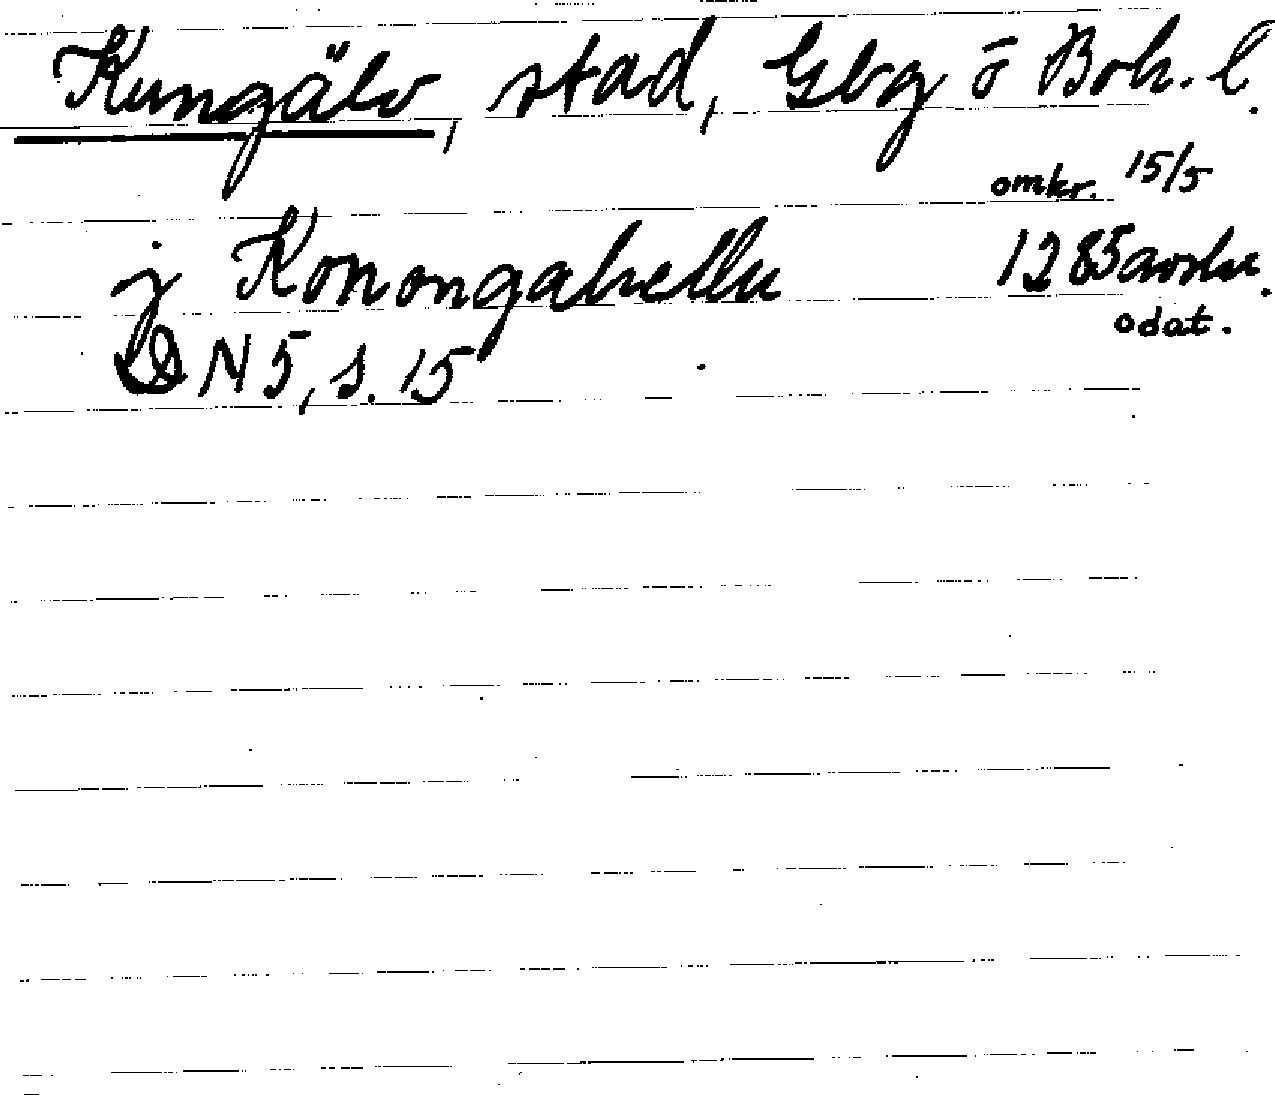 Kungälv, stad, Gbg o Boh. l.
omkr. 15/5
j Konongahellu 1285 avskr.
odat.
DN 5, s. 15